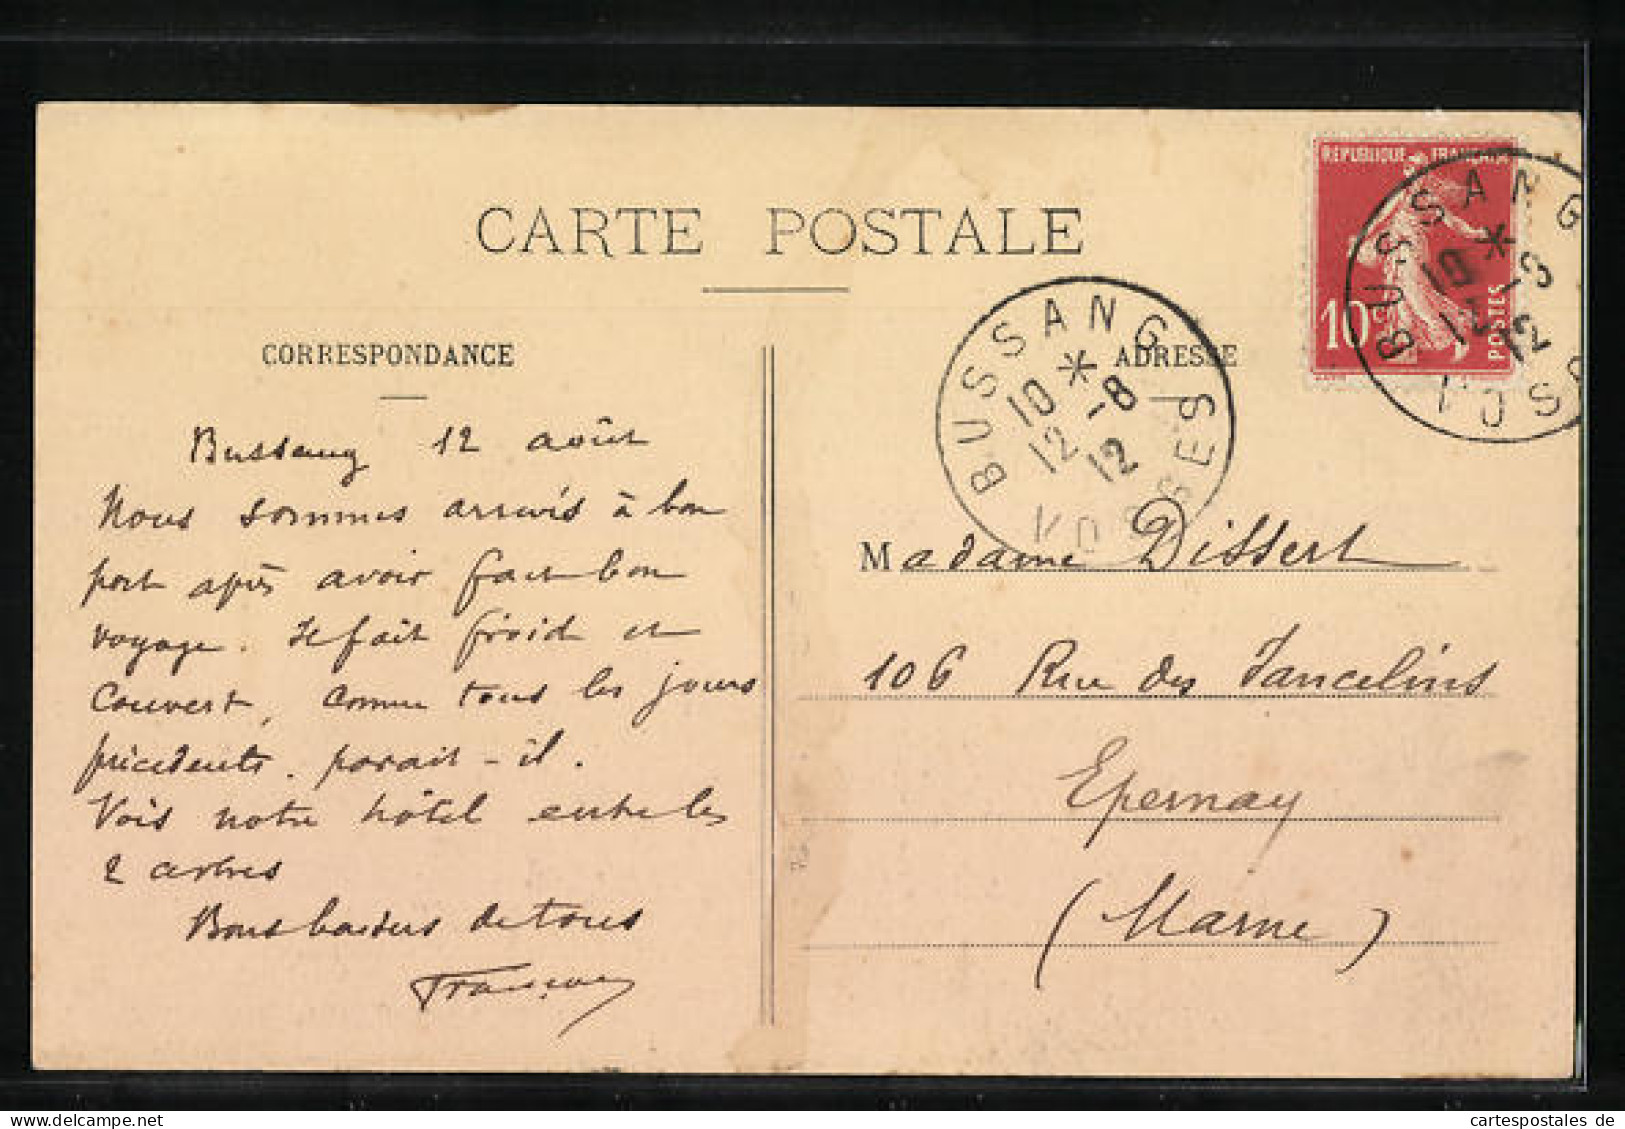 CARTE POSTALE
CORRESPONDANCE
Bussang 12 août
Nous sommes arrivés à bon
port après avoir fait bon
voyage. Il fait froid et
couvert, comme tous les jours
précédents. parait-il.
Vois notre hôtel entre les
2 arbres
Bons baisers de tous
François
ADRESSE
Madame Dissert
106 Rue des Jancelins
Epernay
(Marne)
BUSSANG
10 *
12 -8
12
VOSGES
REPUBLIQUE FRANÇAISE
10c
POSTES
BUSSANG
10 *
12 -8
12
VOSG
cartespostales de